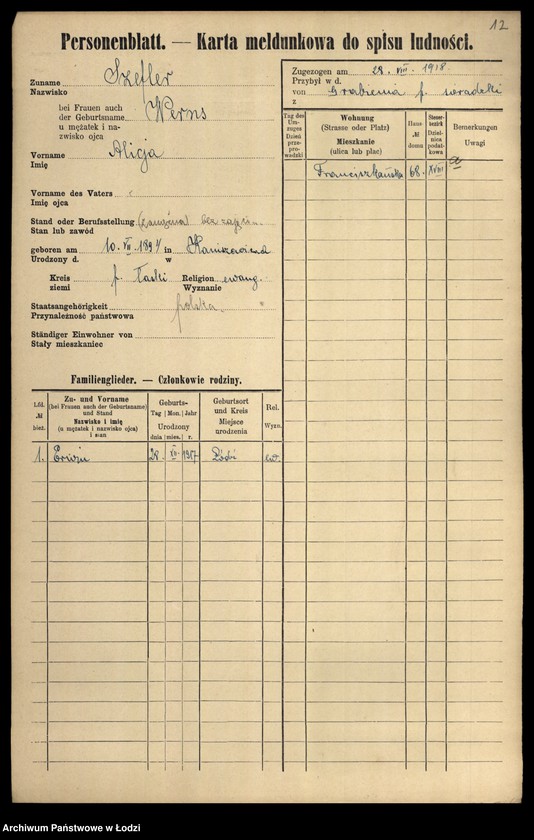 12
Personenblatt. — Karta meldunkowa do spisu ludności.
Zuname Szefler
Nazwisko
bei Frauen auch
der Geburtsname Werns
u mężatek i na-
zwisko ojca
Vorname Alicja
Imię
Vorname des Vaters
Imię ojca
Stand oder Berufsstellung (zamężna) bez zajęcia
Stan lub zawód
geboren am 10. VII. 1894 in
Urodzony d. w
Kreis p. Łaski Religion ewang.
ziemi Wyznanie
Staatsangehörigkeit polska.
Przynależność państwowa
Ständiger Einwohner von
Stały mieszkaniec
Zugezogen am 28. VIII. 1918.
Przybył w d.
von Grabienia p. sieradzki
z
Tag des Um-zuges Dzień prze-prowadzki
Wohnung
(Strasse oder Platz)
Mieszkanie
(ulica lub plac)
Haus-
№
domu
Steuer-
bezirk
Dziel-
nica
podat-
kowa
Bemerkungen
Uwagi
Franciszkańska 68. XVIII a
Familienglieder. — Członkowie rodziny.
Lfd.
№
bież.
Zu- und Vorname
(bei Frauen auch der Geburtsname)
und Stand
Nazwisko i imię
(u mężatek i nazwisko ojca)
i stan
Geburts-
Tag Mon. Jahr
Urodzony
dnia mies. r.
Geburtsort
und Kreis
Miejsce
urodzenia
Rel.
Wyzn.
1. Erwin 28. XII. 1917 Łódź ew.
Archiwum Państwowe w Łodzi